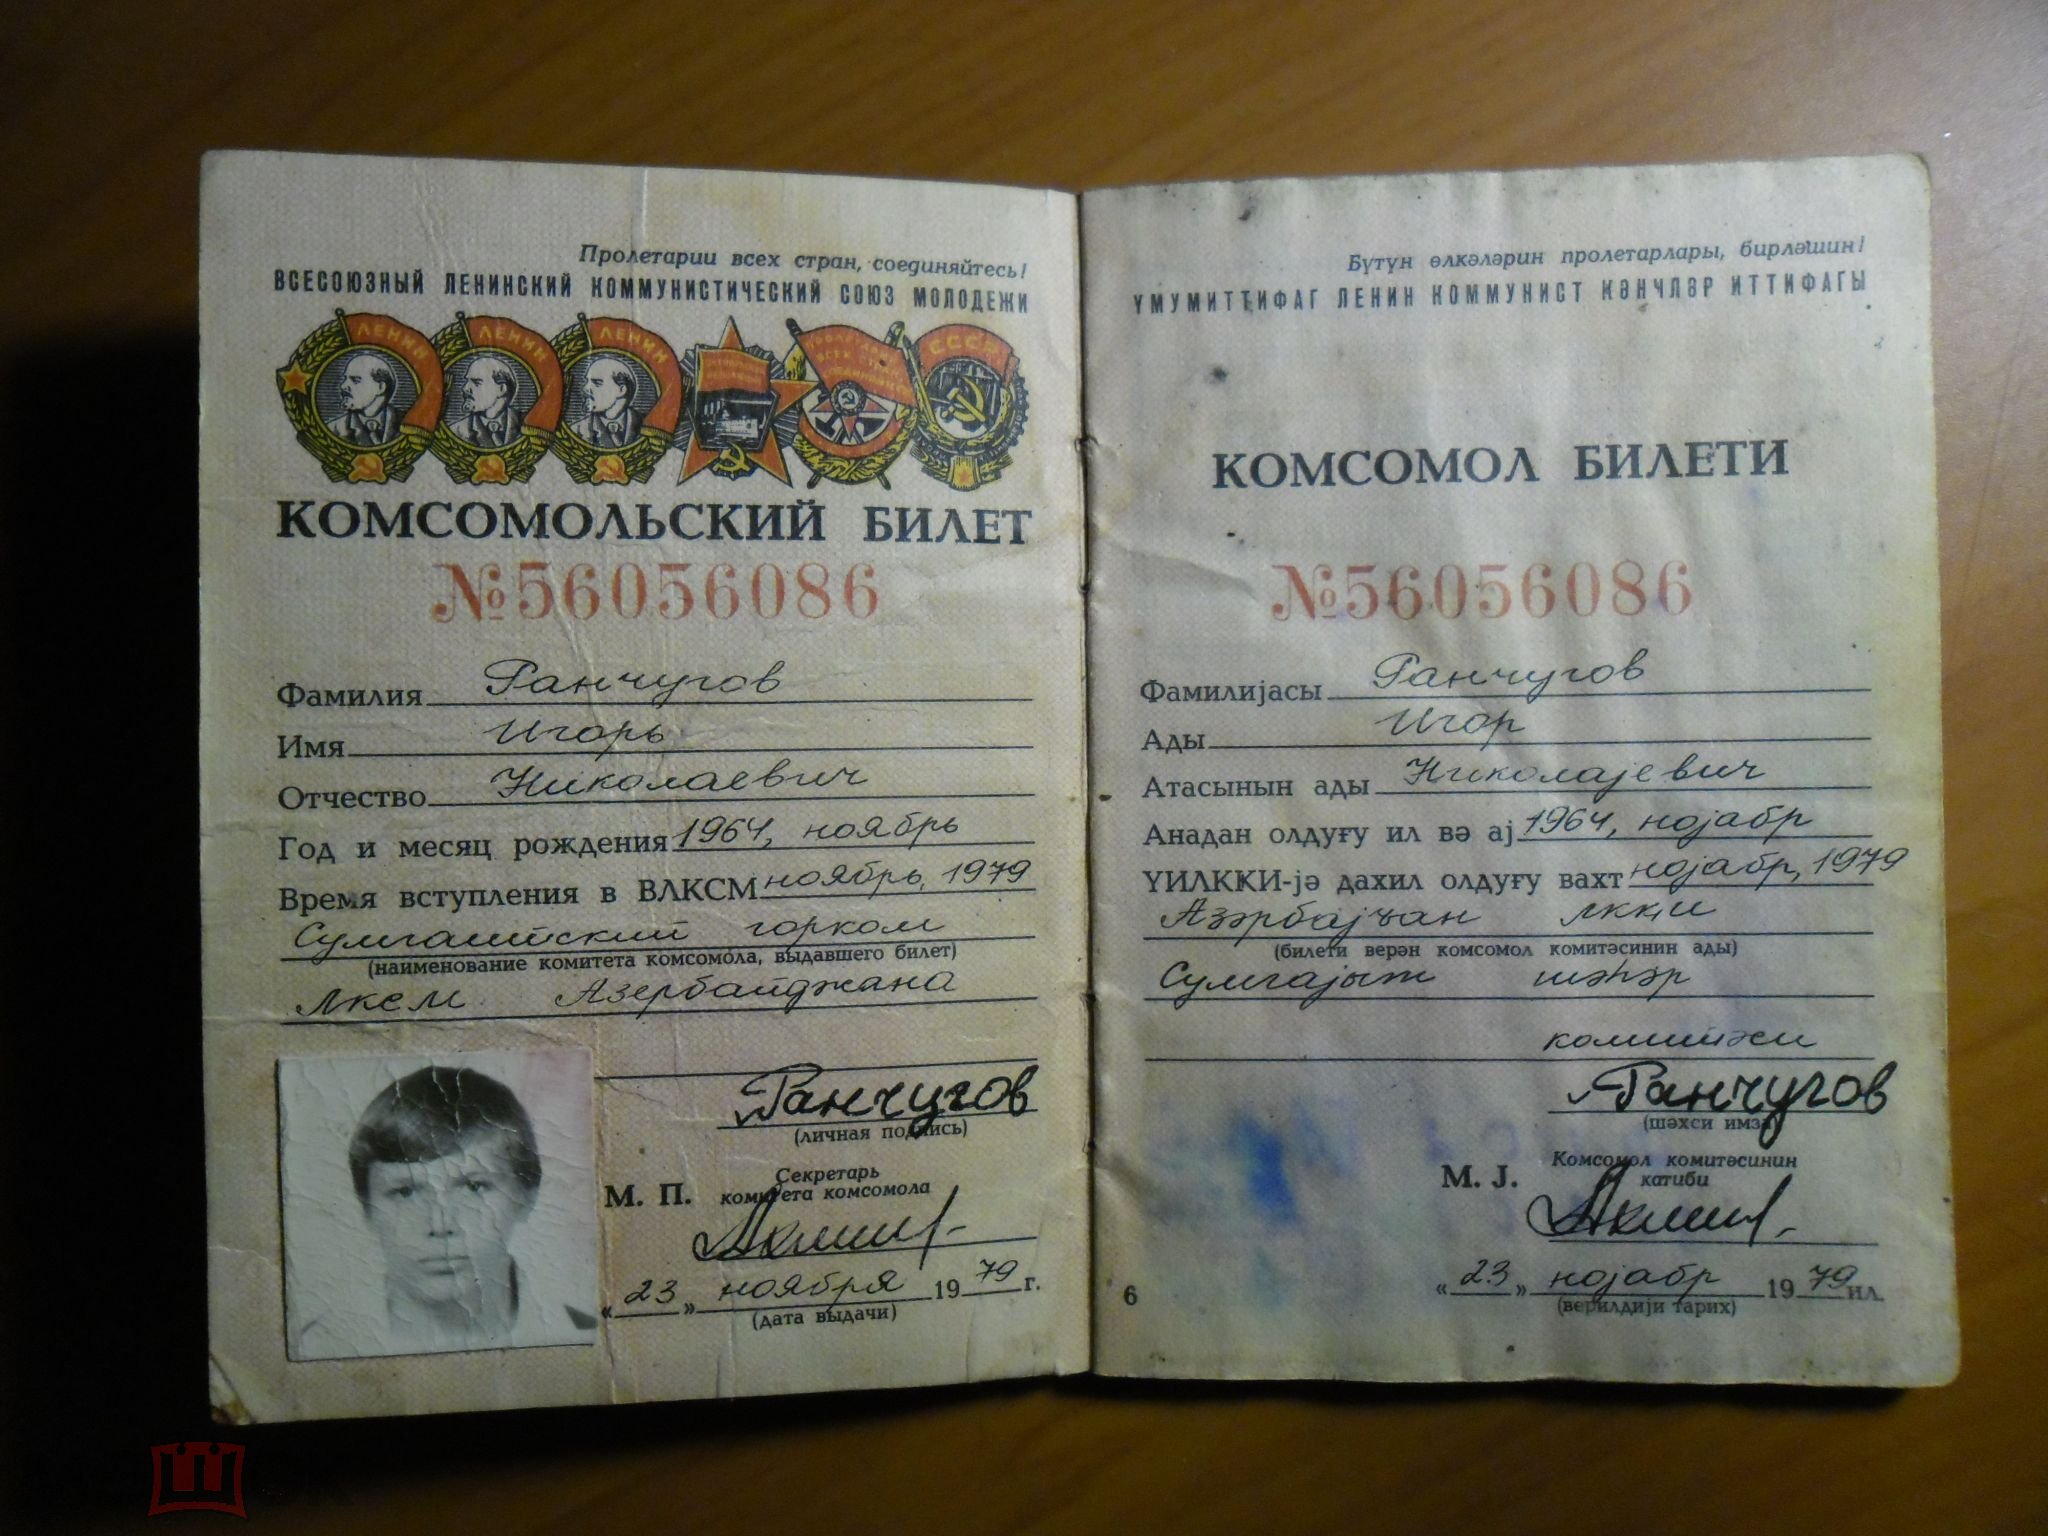 Пролетарии всех стран, соединяйтесь!
ВСЕСОЮЗНЫЙ ЛЕНИНСКИЙ КОММУНИСТИЧЕСКИЙ СОЮЗ МОЛОДЕЖИ
ЛЕНИН ЛЕНИН ЛЕНИН
СССР
КОМСОМОЛЬСКИЙ БИЛЕТ
№56056086
Фамилия Ранчугов
Имя Игорь
Отчество Николаевич
Год и месяц рождения 1964, ноябрь
Время вступления в ВЛКСМ ноябрь, 1979
Сумгаитский горком
(наименование комитета комсомола, выдавшего билет)
ЛКСМ Азербайджана
Ранчугов
(личная подпись)
Секретарь
М. П. комитета комсомола
«23» ноября 1979 г.
(дата выдачи)
Бүтүн өлкәләрин пролетарлары, бирләшин!
ҮМУМИТТИФАГ ЛЕНИН КОММУНИСТ ҜӘНЧЛӘР ИТТИФАГЫ
КОМСОМОЛ БИЛЕТИ
№56056086
Фамилијасы Ранчугов
Ады Игор
Атасынын ады Николајевич
Анадан олдуғу ил вә ај 1964, нојабр
ҮИЛКҜИ-јә дахил олдуғу вахт нојабр, 1979
Азәрбајҹан ЛКҜИ
(билети верән комсомол комитәсинин ады)
Сумгајыт шәһәр
комитәси
Ранчугов
(шәхси имза)
Комсомол комитәсинин
М. Ј. катиби
«23» нојабр 1979 ил.
(верилдији тарих)
6